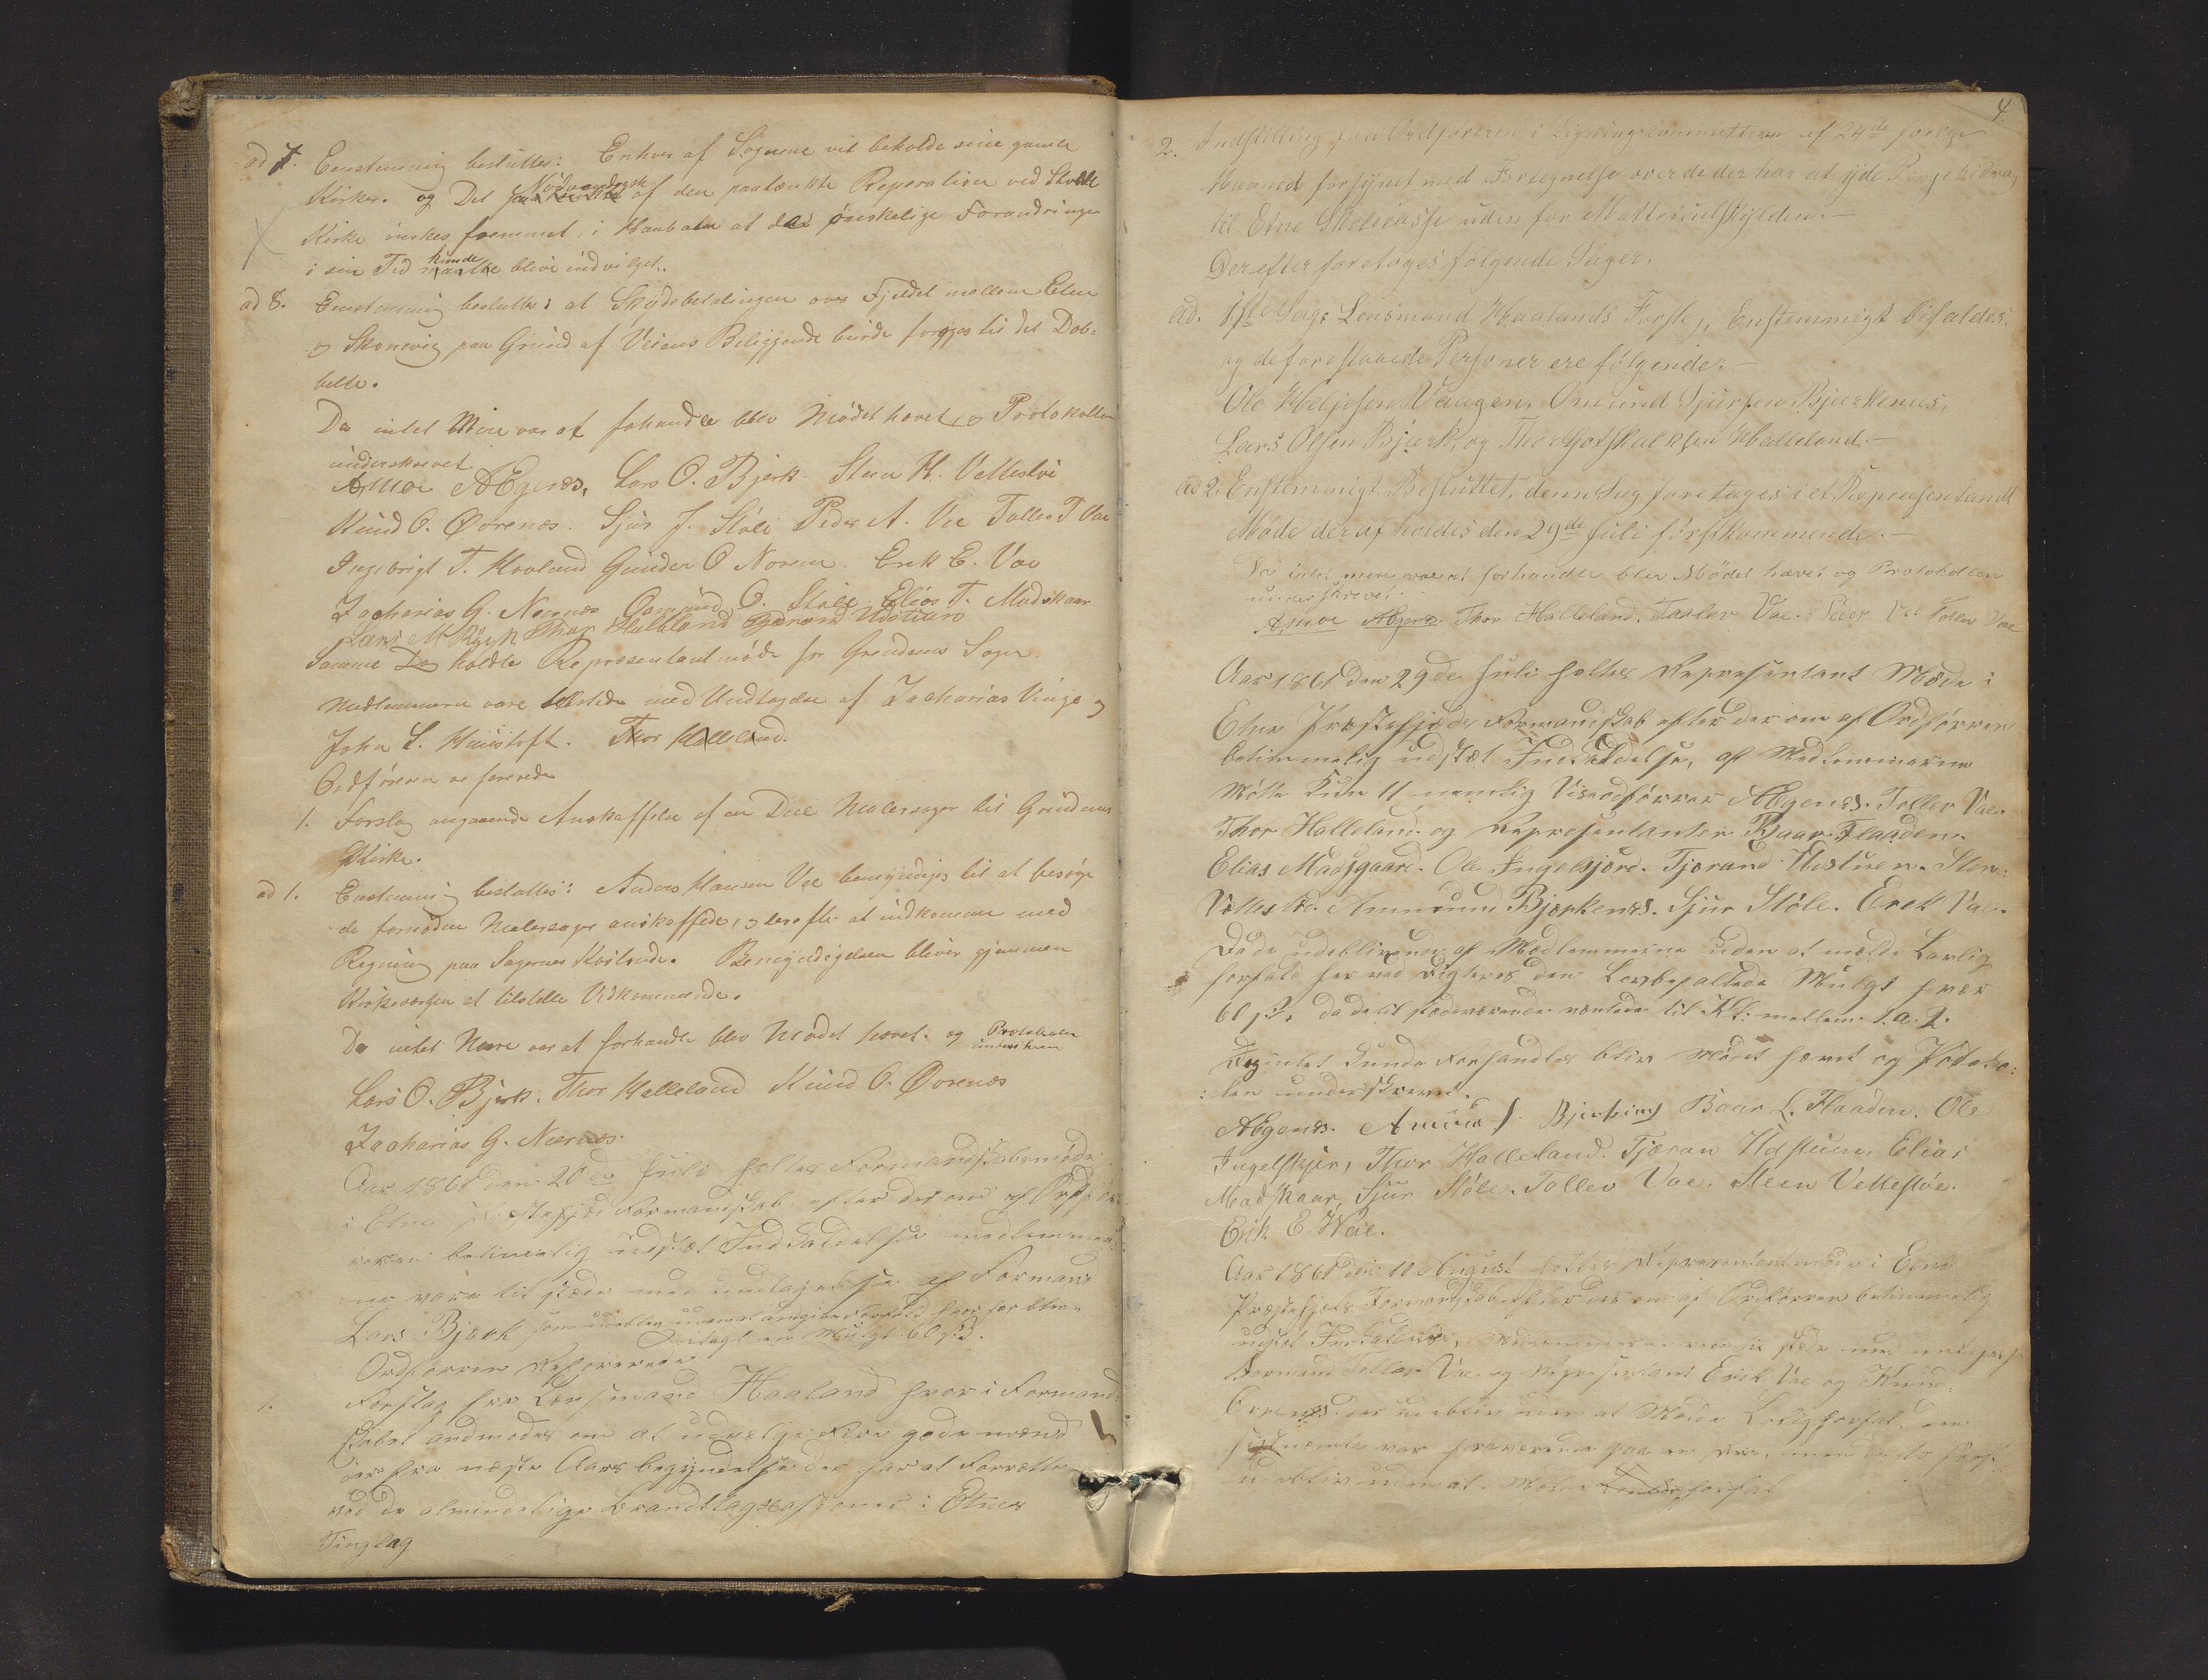 ad 7. Eenstemmig besluttes: Enhver af Sognene vil beholde sine gamle
Kirker. og Det Nødvendigste af den paatænkte Reperation ved Stødle
Kirke ønskes fremmet, i Haab om at de ønskelige Forandringer
i sin Tid kunde blive indvilget.
ad 8. Eenstemmig besluttes: at Skydsbetalingen over Fjeldet mellem Etne
og Skonevig paa Grund af Veiens Beliggende burde forøges til det Dob-
belte.
Da intet Mere var at forhandle blev Mødet hævet og Protokollen
underskrevet.
Amoe AEgenes, Lars O. Bjerk. Steen H. Vettestøe
Knud O. Øvrenæs. Sjur J. Støle Peder A. Vee Tollev T Vae
Ingebrigt T. Haaland Gunder O Norem. Erik E. Vae
Zacharias G. Nernæs Osmund O. Støle Elias T. Madskaar
Lars M Thor Halleland Tjerand Udstuen
Samme Dag holdte Repræsentantmøde for Grindems Sogn
Medlemmerne vare tilstede med Undtagelse af Zacharias Vinje og
John S. Thor Halleland.
Ordføreren refererede
1. Forslag angaaende Anskaffelse af en Deel Malersager til Grindems
Kirke.
ad 1. Eenstemmig besluttes: Anders Hansen Vee bemyndiges til at besørge
de fornødne Malersager anskaffede, og derefter at indkomme med
Regning paa Sagernes Kostende. Bemyndigelsen bliver gjennem
Kirkeværgen at tilstille Vedkommende.
Da intet Mere var at forhandle blev Mødet hævet. og Protokolen
underskreven
Lars O. Bjerk. Thor Halleland Knud O. Øvrenæs
Zacharias G. Nernæs.
Aar 1861 den 20de Juli holtes Formandskabsmøde
i Etne Præstefjelds Formandskab efter der om af Ordfør-
reren betimelig udstæt Indkaldelse medlemmer-
ne vare til stæde med undtagelse af Formand
Lars Bjærk som udeblev uden at angive Forfald hvor for blev
ilagt en Mulgt 60 s.
Ordførren Refererede
1. Forslag fra Lensmand Haaland hvor i Formand-
skabet andmodes om at udvælge Fire gode mænd
der fra næste Aars begyndelse der har at Forrette
ved de almindelige Brandttagxasioner i Etnes
Tinglag
4
2. Indstilling fra Ordføreren i Ligningscommitteen af 24de forige
Maaned forsynet med Fortegnelse over de der har at yde Pengebidrag
til Etne Skolecasse uden for Mattriculskylden.-
Derefter foretoges følgende Sager.
ad. 1ste Sag: Lensmand Haalands Forslag, Enstemmigt bifaldes.
og de foreslaaede Personer ere følgende:-
Ole Heljesen Vaagen, Omund Sjursen Bjerkenes,
Lars Olsen Bjerk, og Thor Gotskalksen Halleland.-
ad 2. Enstemmigt Besluttet, denne Sag foretages i et Repræsentant
Møde der afholdes den 29de Juli førstkommende.-
Da intet mere var at forhandle blev Mødet hævet og Protokollen
underskrevet.
Amoe AEgenes Thor Halleland. Tollev Vae. Peder Vee Tollev Vae
Aar 1861 den 29de Juli holtes Representant Møde i
Etne Præstefjelds Formandskab efter der om af Ordførren
betimmelig udstæt Indkaldelse, af Medlemmerne
Møtte Kun 11 nemlig Viseordførrer AEgenes. Tollev Vae.
Thor Halleland. og Representanter Baar Flaaden.
Elias Madsgaard. Ole Ingelsjord. Tjærand Udstuen. Sten
Vettestøe. Ammund Bjerkenes. Sjur Støle. Erek Vae.
Da de udeblivende af Medlemmerne uden at melde Lovlig
forfald her ved Digteres den Lovbefaltede Mulgt hver
60 s. da de til stædeværende ventede til Kl: mellem 1. a. 2.
Da intet Kunde Forhandles blev Mødet hævet og Protoko-
len underskrevet.
AEgenes. Amund S. Bjerkenes Baar L. Flaaden. Ole
Ingelskjer, Thor Halleland. Tjæran Udstuen, Elias
Madskaar, Sjur Støle. Tollev Vae, Steen Vettestøe.
Erik E. Wae.
Aar 1861 den 10 August holtes Representantmøde i Etne
Præstefjelds Formandskab efter der om af Ordførren betimmelig
udstæt Indkaldelse, Medlemmerne vare til stæde med undtagelse
Formand Tollev Vae og Representant Erik Vae og Knud
Øvrenes der udeblev uden at Melde Lovlig forfal, den
sistnæmte var fraværende paa en
udeblev uden at Melde Lovlig forfal